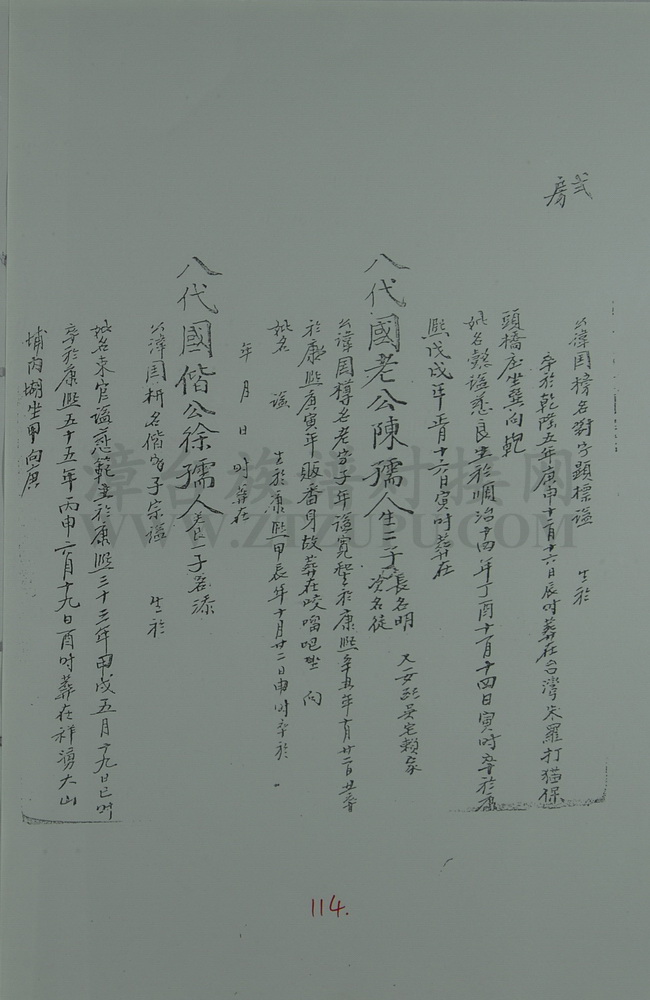 弍房
公諱国榜名對字顯標謚 生於
卒於乾隆五年庚申十二月十六日辰时葬在台灣 羅打猫保
頭橋庄坐巽向乾
妣名 謚慈良生於順治十四年丁酉十二月十四日寅时卒於康
熙戊戌年正月十六日寅时葬在
八代國老公陳孺人生二子長名明次名徒 又一女 吳宅賴家
公諱国樽名老字子年謚寬 於康熙辛丑年 月廿二日丑时卒
於康熙庚寅年販番身故葬在咬𠺕吧坐 向
妣名 謚 生於康熙甲辰年十月廿二日申时卒於
年 月 日 时葬在
八代國偕公徐孺人养一子名添
公諱国 名偕字子宗謚 生於
妣名束官謚慈範生於康熙三十三年甲戌五月十九日巳时
卒於康熙五十五年丙申六月十九日酉时葬在祥湧大山
埔内 坐甲向庚
漳台族譜对接网
www.zizupu.com
114.